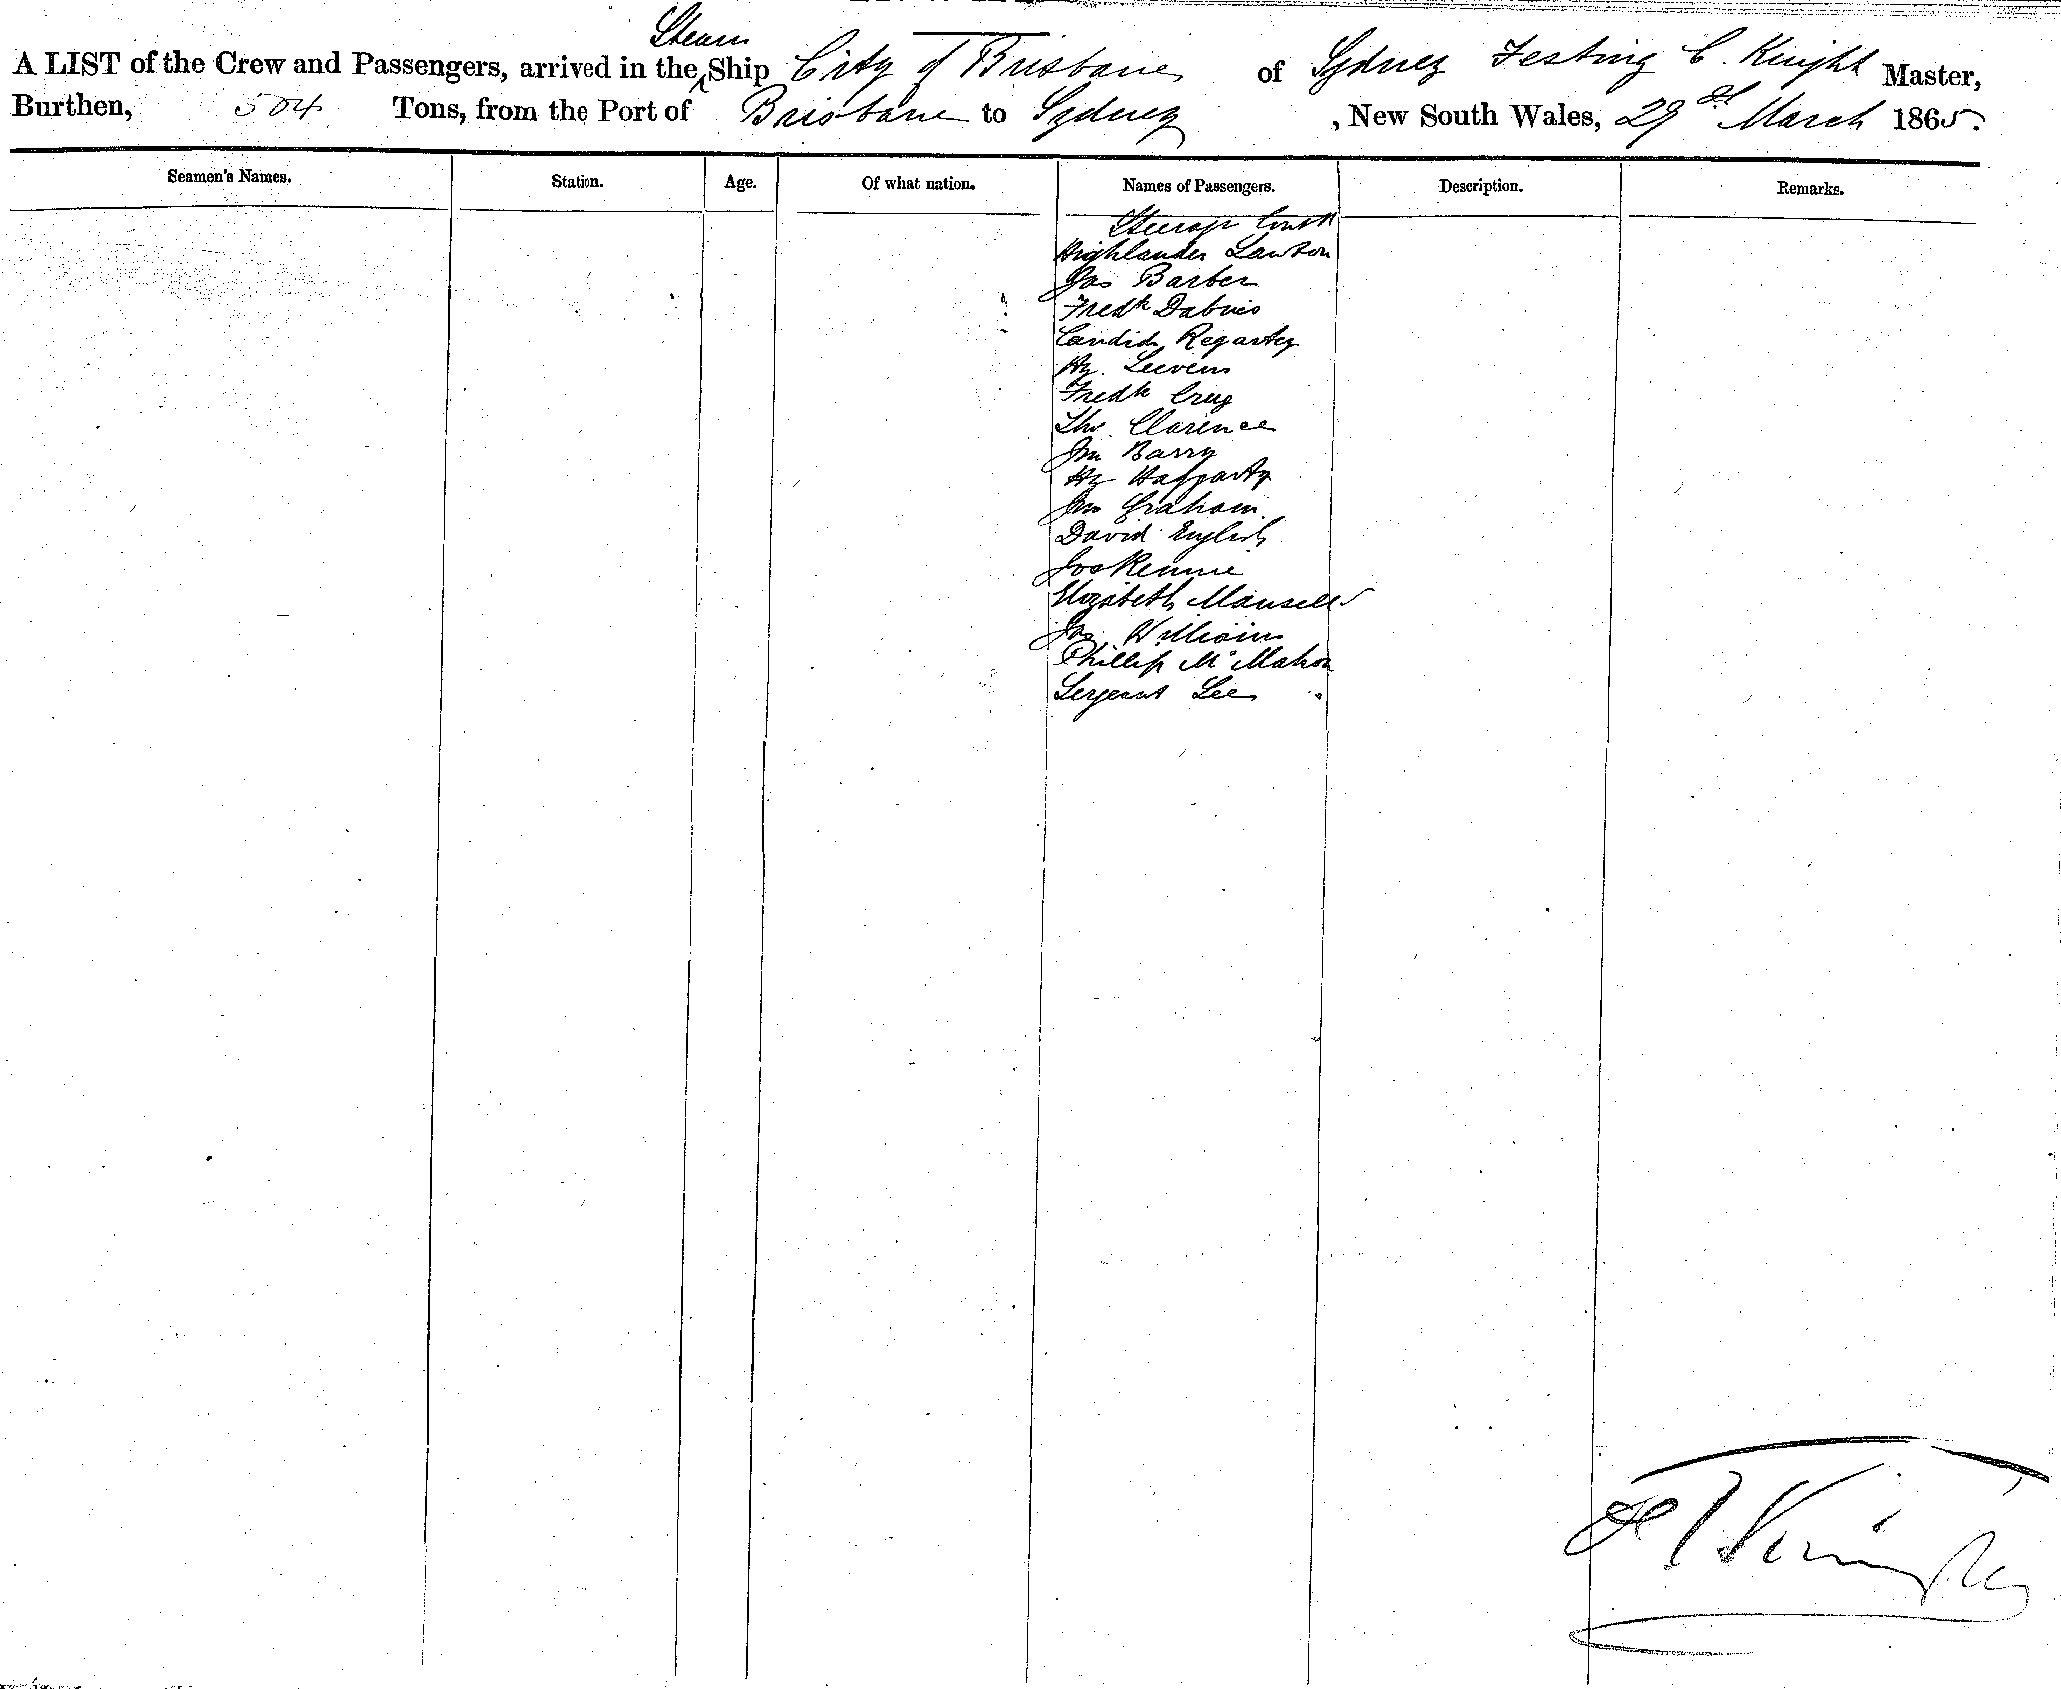 Steam
A LIST of the Crew and Passengers, arrived in the Ship City of Brisbane of Sydney Festing C. Knight Master,
Burthen, 504 Tons, from the Port of Brisbane to Sydney , New South Wales, 29th March 1865.
Seamen's Names. Station. Age. Of what nation. Names of Passengers. Description. Remarks.
Steerage
Highlander Lawton
Jas Barber
Fredk
Candid
Hy.
Fredk
Clarence
Jno Barry
Hy Haggarty
Jno Graham
David English
Jos Rennie
Elizabeth Mansell
Jas Williams
Phillip McMahon
Sergeant Lee